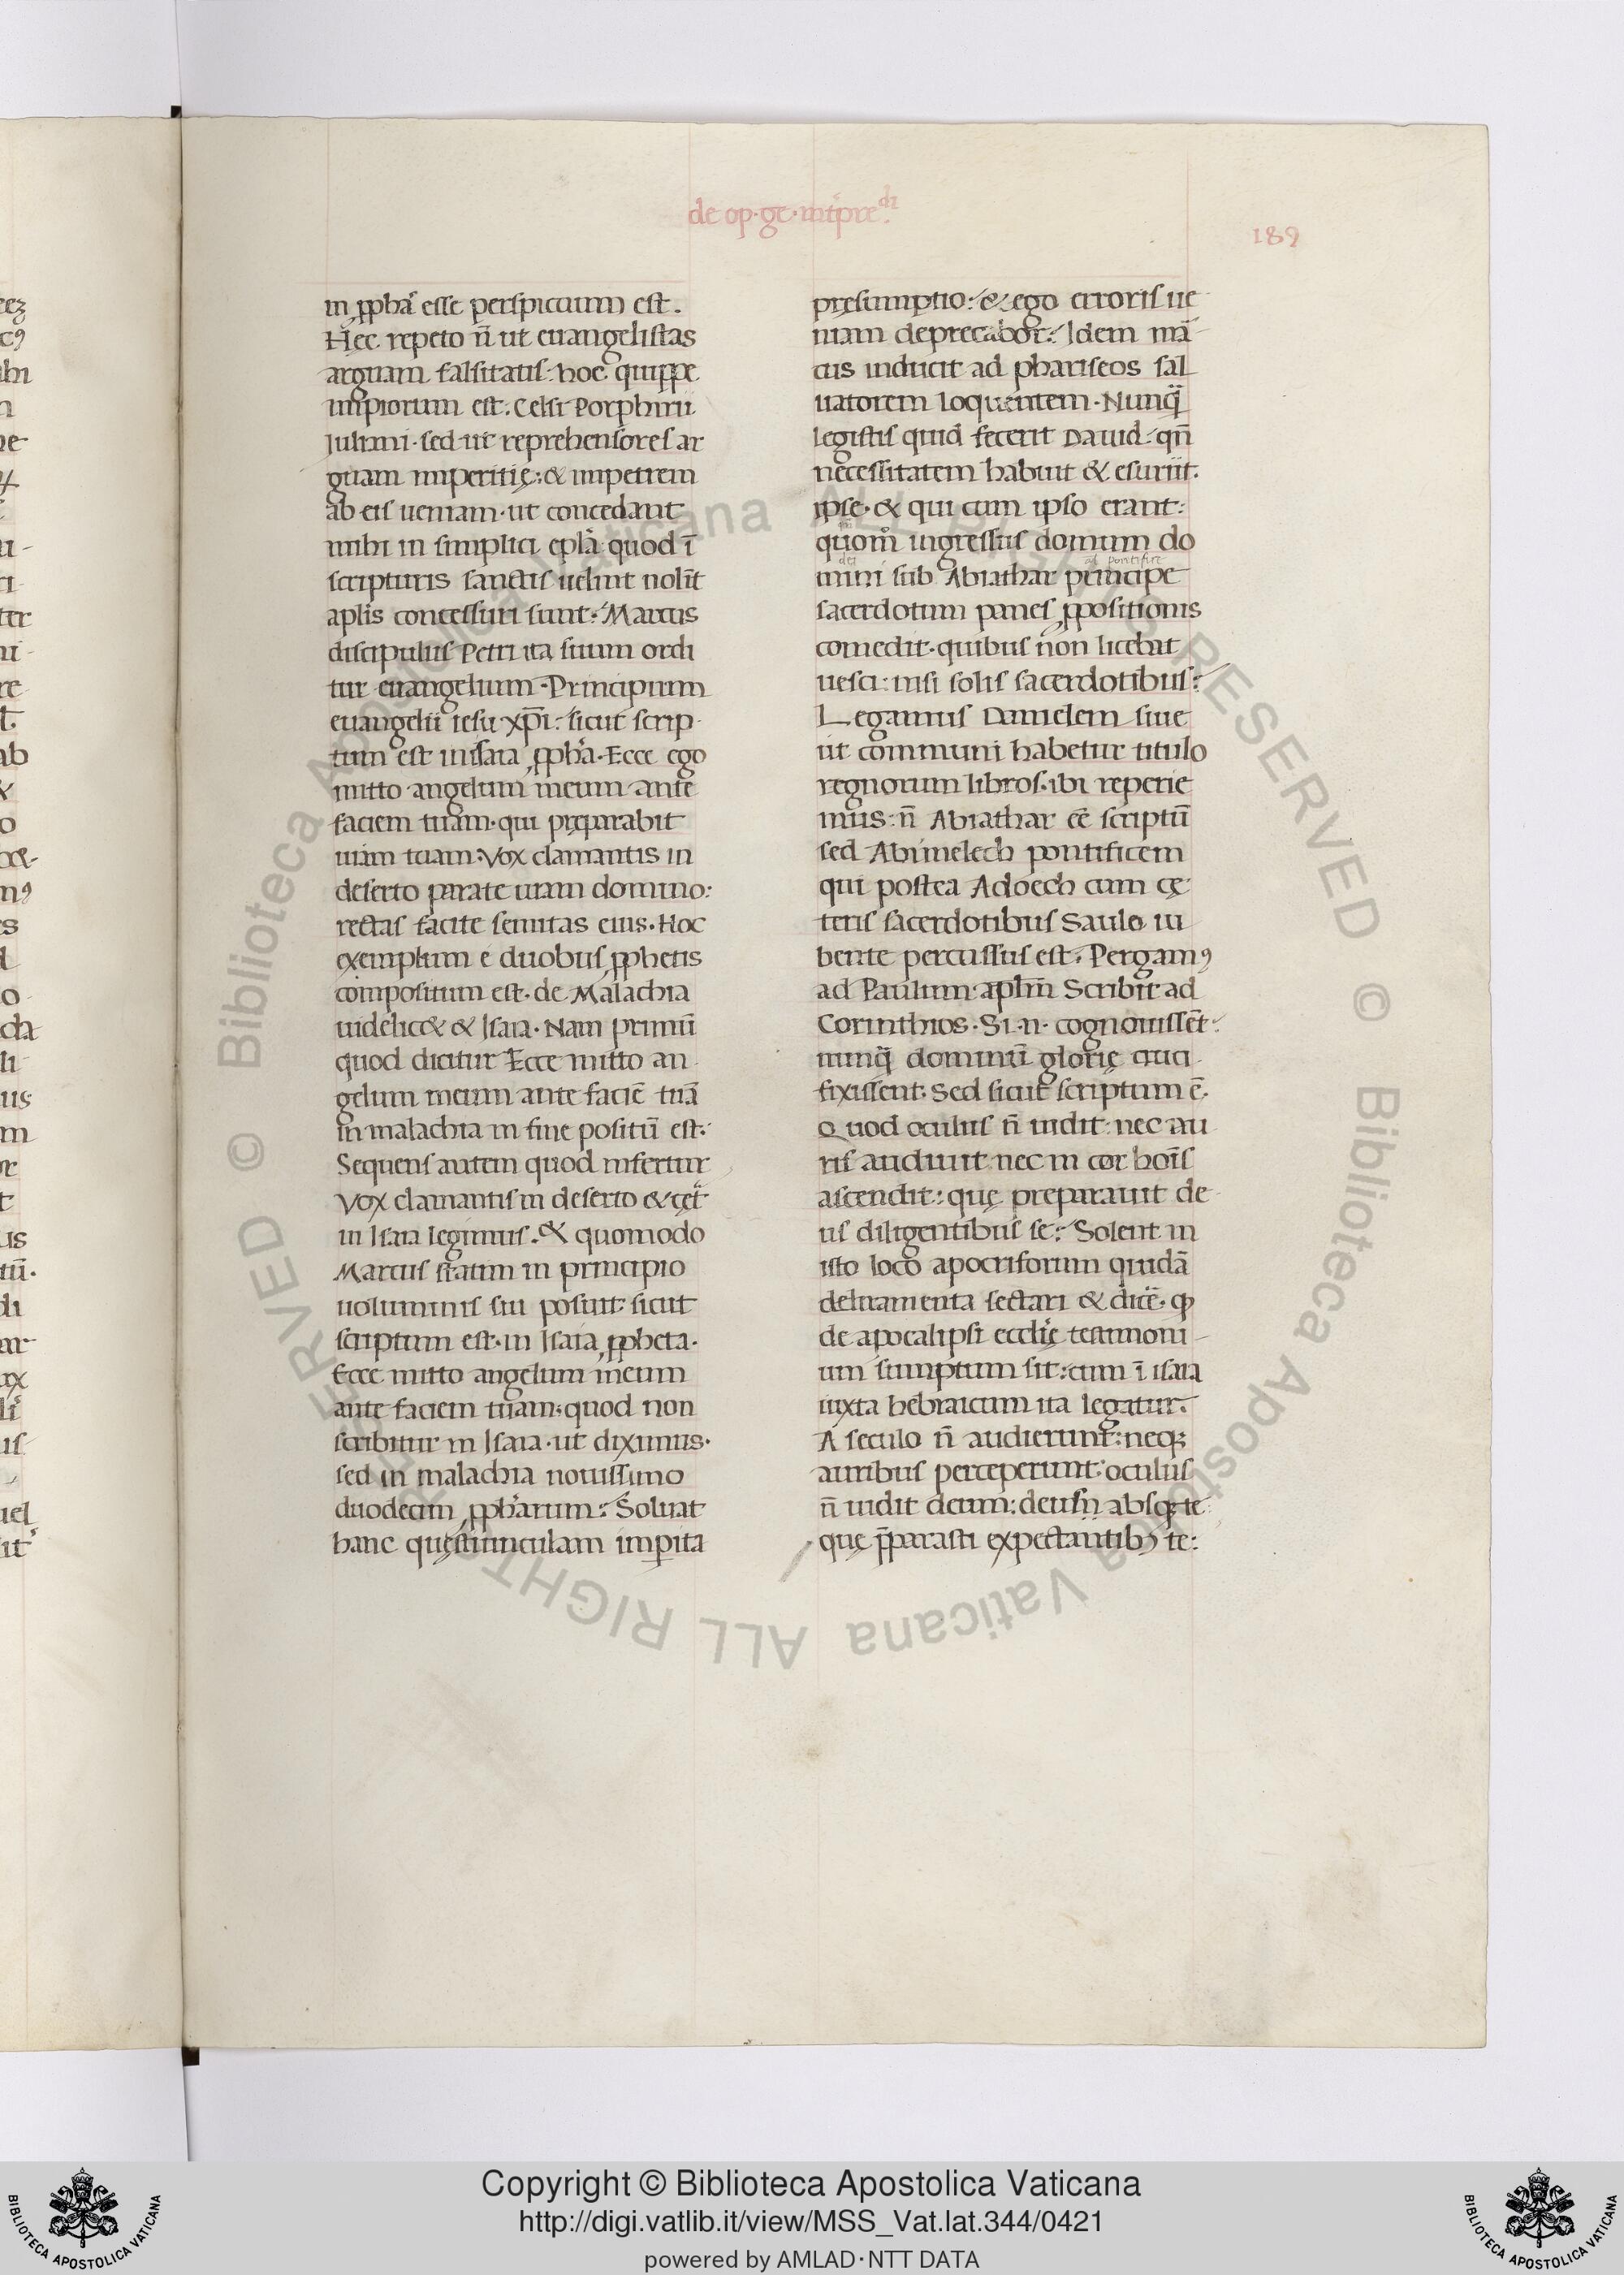 de op·ge·int͛pre.di
189
in ꝓpha͛ esse perspicuum est.
Hęc repeto n̄ ut euangelistas
arguam falsitatis· hoc quippe
impiorum est. Celsi Porphirii
Juliani· sed ut reprehensores ar
guam imperitię: & impetrem
ab eis ueniam· ut concedant
mihi in simplici epl̄a quod ī
scripturis sanctis uelint nolīt
apl̄is concessuri sunt. Marcus
discipulus Petri ita suum ordi
tur euangelium. Principium
euangelii iesu xp̄i: sicut scrip
tum est in isaia ꝓpha͛. Ecce ego
mitto angelum meum ante
faciem tuam· qui pręparabit
uiam tuam: Vox clamantis in
deserto parate uiam domino:
rectas facite semitas eius. Hoc
exemplum e duobus ꝓphetis
compositum est. de Malachia
uidelic& & Isaia. Nam primū
quod dicitur Ecce mitto an
gelum meum ante faciē tuā
in malachia in fine positū est.
Sequens autem quod infertur
Vox clamantis in deserto & cęt͛
in Isaia legimus. & quomodo
Marcus statim in principio
uoluminis sui posuit sicut
scriptum est· in Isaia ꝓpheta.
Ecce mitto angelum meum
ante faciem tuam: quod non
scribitur in Isaia· ut diximus·
sed in malachia nouissimo
duodecim ꝓphārum: Soluat
hanc quęstiunculam impita
pręsumptio: & ego erroris ue
niam deprecabor: Idem mā
cus inducit ad phariseos sal
uatorem loquentem. Nunq̄
legistis quid fecerit Dauid qn̄
necessitatem habuit & esuriit.
ipse· & qui cum ipso erant:
quom̊ ingressus domum do
dei
pontifice
mini sub Abiathar principe
sacerdotum panes ꝓpositionis
comedit· quibus non licebat
uesci: nisi solis sacerdotibus:
Legamus Danielem siue
ut communi habetur titulo
regnorum libros· ibi reperie
mus: n̄ Abiathar eē scriptū
sed Abimelech pontificem
qui postea Adoech cum cę
teris sacerdotibus Saulo iu
bente percussus est. Pergamꝰ
ad Paulum apl̄m Scribit ad
Corinthios. Si· n· cognouissēt
nunq̄ dominū glorię cruci
fixissent. Sed sicut scriptum ē.
Quod oculus n̄ uidit: nec au
ris audiuit nec in cor hoīs
ascendit: quę preparauit de
us diligentibus se: Solent in
isto loco apocrisorum quidā
deliramenta sectari & dicē· ꝙ
de apocalipsi eccl̄ię testimoni
um sumptum sit: cum ī isaia
iuxta hebraicum ita legatur.
A seculo n̄ audierunt: neqꝫ
auribus perceperunt· oculus
n̄ uidit deum: deusn absqꝫ te
quę p̄parasti expectantibꝫ te:
Copyright © Biblioteca Apostolica Vaticana
http://digi.vatlib.it/view/MSS_Vat.lat.344/0421
powered by AMLAD·NTT DATA
BIBLIOTECA APOSTOLICA VATICANA
BIBLIOTECA APOSTOLICA VATICANA
© Biblioteca Apostolica Vaticana ALL RIGHTS RESERVED © Biblioteca Apostolica Vaticana ALL RIGHTS RESERVED